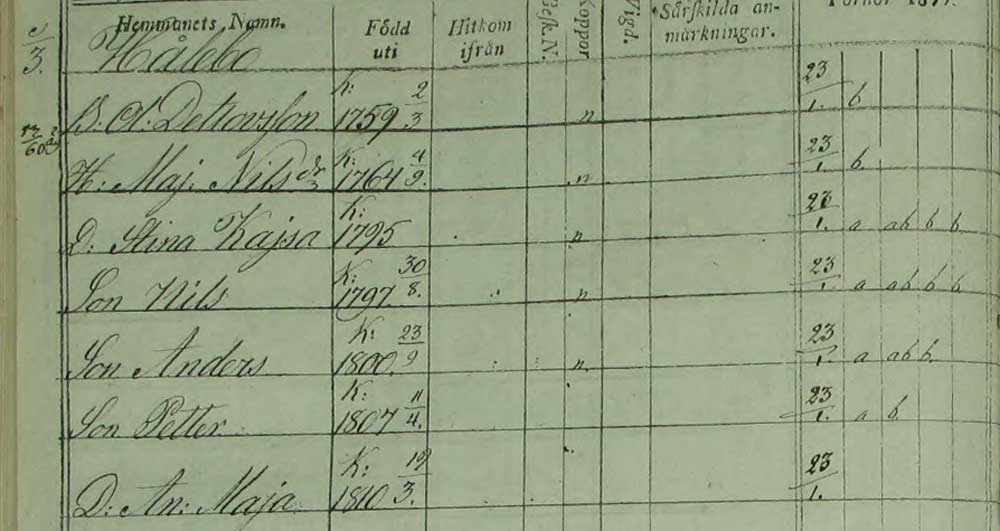 Hemmanets Namn. Född uti Hitkom ifrån Koppor Vigd. Särskilda anmärkningar.
3. Hålebo
B. Ol. Detlovsson K: 1759 2/3 n 23/1. b
H: Maj. Nilsdr K: 1764 4/9. n 23/1. b.
D: Stina Kajsa K: 1795 n 23/1. a ab b b
Son Nils K: 1797 30/8. n 23/1. a ab b b
Son Anders K: 1800. 23/9 n. 23/1. a ab b.
Son Petter K: 1807 11/4. 23/1. a b
D: An: Maja K: 1810 19/3. 23/1.